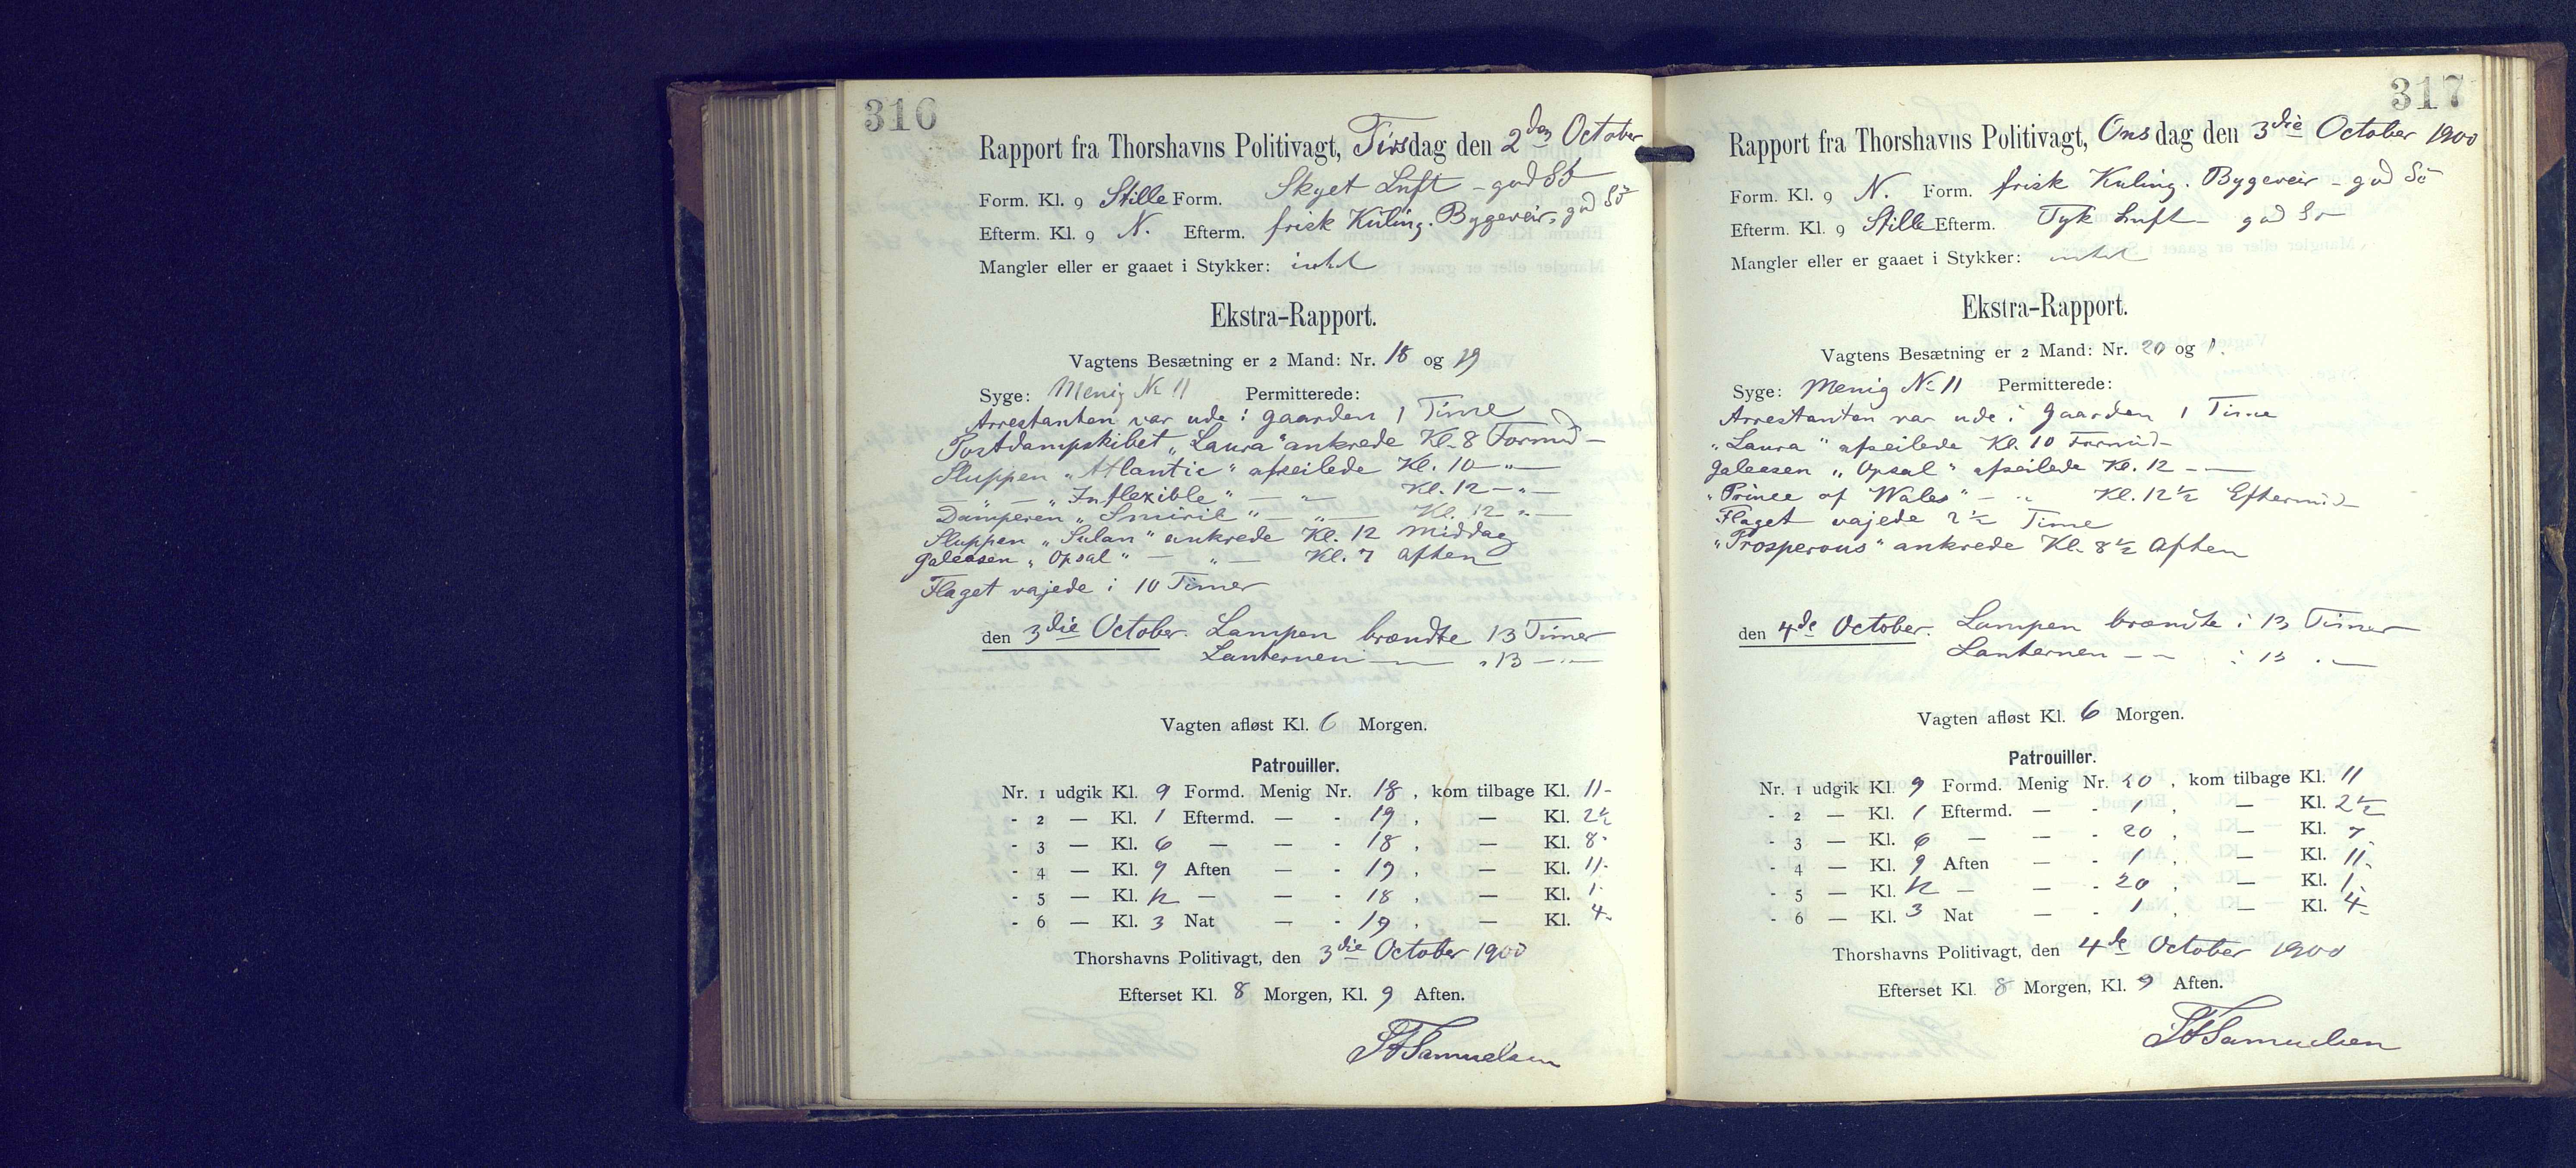 316
Rapport fra Thorshavns Politivagt, Tirsdag den 2den October
Form. Kl. 9 Stille Form. Skyet Luft - god Sö
Efterm. Kl. 9 N. Efterm. frisk Kuling. Bygeveir, god Sö
Mangler eller er gaaet i Stykker: intet
Ekstra-Rapport.
Vagtens Besætning er 2 Mand: Nr. 18 og 19
Syge: Menig No 11 Permitterede:
Arrestanten var ude i Gaarden 1 Time
Postdampskibet „Laura“ ankrede Kl. 8 Formd -
Sluppen „Atlantic“ afseilede Kl. 10 — „ —
— „ — „Inflexible“ — „ — Kl. 12 — „ —
Damperen „Smiril“ — „ — Kl. 12 „ —
Sluppen „Sulan“ ankrede Kl. 12 Middag
Galeasen „Opsal“ — „ — Kl. 7 Aften
Flaget vajede i 10 Timer
den 3die October. Lampen brændte 13 Timer
Lanternen — — „ 13 — „ —
Vagten afløst Kl. 6 Morgen.
Patrouiller.
Nr. 1 udgik Kl. 9 Formd. Menig Nr. 18, kom tilbage Kl. 11-
- 2 — Kl. 1 Eftermd. — - 19, — Kl. 2½
- 3 — Kl. 6 — — - 18, — Kl. 8-
- 4 — Kl. 9 Aften — - 19, — Kl. 11-
- 5 — Kl. 12 — — - 18, — Kl. 1-
- 6 — Kl. 3 Nat — - 19, — Kl. 4-
Thorshavns Politivagt, den 3die October 1900
Efterset Kl. 8 Morgen, Kl. 9 Aften.
Samuelsen
317
Rapport fra Thorshavns Politivagt, Onsdag den 3die October 1900
Form. Kl. 9 N. Form. frisk Kuling. Bygeveir - god Sö
Efterm. Kl. 9 Stille Efterm. Tyk Luft - god Sö
Mangler eller er gaaet i Stykker: intet
Ekstra-Rapport.
Vagtens Besætning er 2 Mand: Nr. 20 og 1.
Syge: Menig No 11 Permitterede:
Arrestanten var ude i Gaarden 1 Time
„Laura“ afseilede Kl. 10 Formid-
Galeasen „Opsal“ afseilede Kl. 12 - —
„Prince of Wales“ — „ Kl. 12½ Eftermid-
Flaget vajede 2½ Time
„Prosperous“ ankrede Kl. 8½ Aften
den 4de October. Lampen brændte i 13 Timer
Lanternen — — i 13 „ —
Vagten afløst Kl. 6 Morgen.
Patrouiller.
Nr. 1 udgik Kl. 9 Formd. Menig Nr. 20, kom tilbage Kl. 11
- 2 — Kl. 1 Eftermd. — - 1, — Kl. 2½
- 3 — Kl. 6 — — - 20, — Kl. 7-
- 4 — Kl. 9 Aften — - 1, — Kl. 11-
- 5 — Kl. 12 — — - 20, — Kl. 1-
- 6 — Kl. 3 Nat — - 1, — Kl. 4-
Thorshavns Politivagt, den 4de October 1900
Efterset Kl. 8 Morgen, Kl. 9 Aften.
Samuelsen